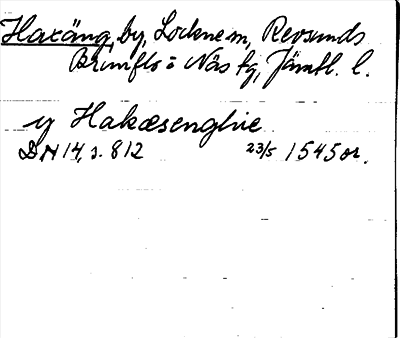 Haxäng, by, Lockne sn, Revsunds
Brunflo o Näs tg, Jämtl. l.
y Hakæsenghie
DN 14, s. 812 23/5 1545 or.